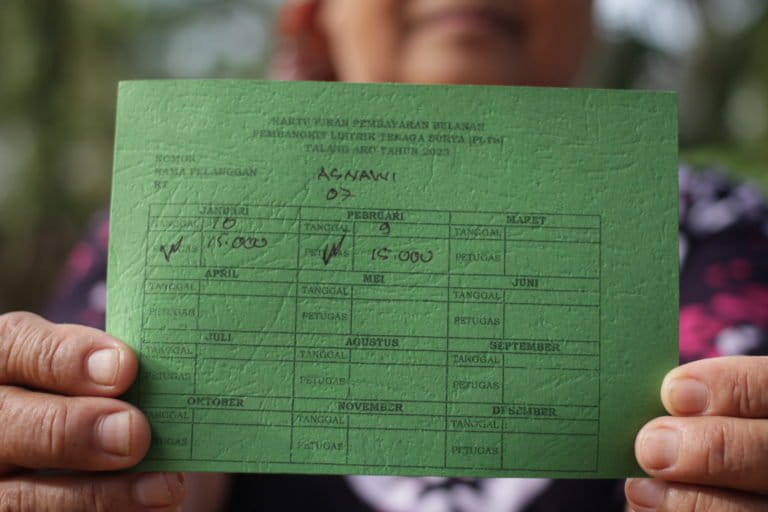 KARTU IURAN PEMBAYARAN BULANAN
PEMBANGKIT LISTRIK TENAGA SURYA (PLTS)
TALANG ARO TAHUN 2023
NOMOR
NAMA PELANGGAN ASNAWI
RT 07
JANUARI FEBRUARI MARET
TANGGAL 10 TANGGAL 9 TANGGAL
PETUGAS 15.000 PETUGAS 15.000 PETUGAS
APRIL MEI JUNI
TANGGAL TANGGAL TANGGAL
PETUGAS PETUGAS PETUGAS
JULI AGUSTUS SEPTEMBER
TANGGAL TANGGAL TANGGAL
PETUGAS PETUGAS PETUGAS
OKTOBER NOVEMBER DESEMBER
TANGGAL TANGGAL TANGGAL
PETUGAS PETUGAS PETUGAS